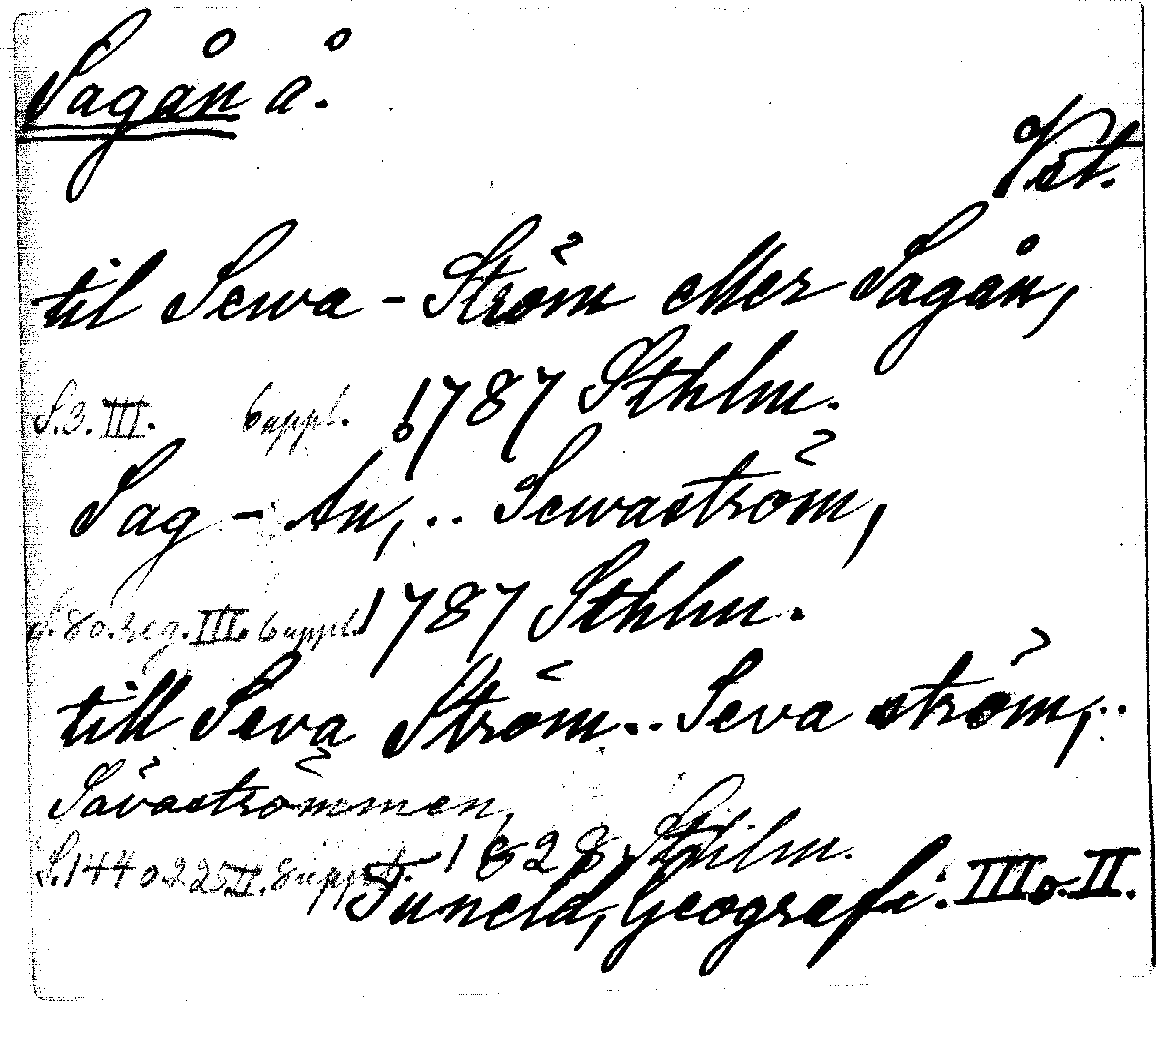 Sagån å.
Vst.
til Sewa - Ström eller Sagån,
S.3. III. 6 uppl. 1787 Sthlm.
Sag - An, .. Sewaström,
s. 80. reg. III. 6 uppl. 1787 Sthlm.
till Seva Ström .. Seva ström, ..
Sävaströmmen,
S. 144 o 225 II. 8 uppl. 1828, Sthlm.
Tuneld, Geografi. III o. II.